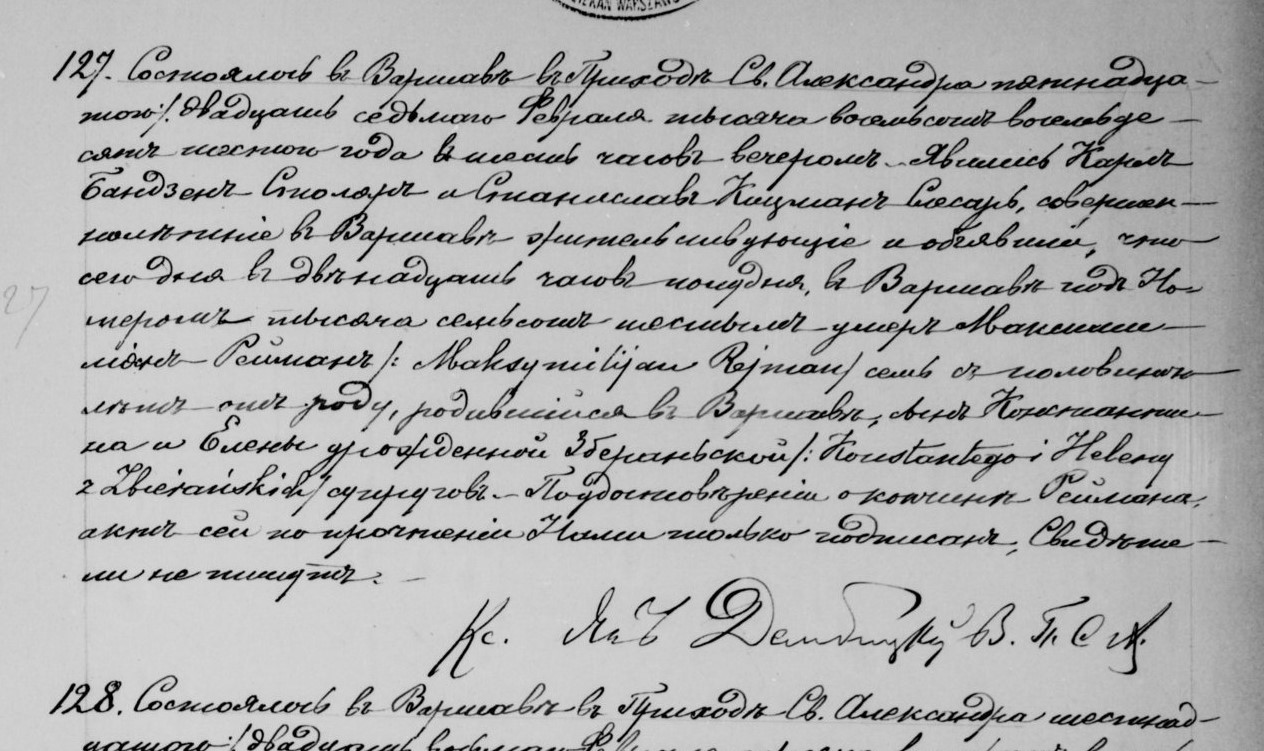 ДЗІЕКАN WARSZAWS
127. Состоялось въ Варшавѣ въ Приходѣ Св. Александра пятнадца-
того /: двадцать седьмаго Февраля тысяча восемьсотъ восемьде-
сятъ шестого года въ шесть часовъ вечеромъ. Явились Карлъ
Бандзенъ Столяръ и Станиславъ Коцманъ Слесарь, совершен-
нолѣтніе въ Варшавѣ жительствующіе и объявили, что
сего дня въ двѣнадцать часовъ полудня, въ Варшавѣ подъ Но-
меромъ тысяча семьсотъ шестымъ умеръ Максими-
ліянъ Рейманъ /: Maksymilijan Rejman / семь съ половиною
лѣтъ отъ роду, родившійся въ Варшавѣ, сынъ Константи-
на и Елены урожденной Зберанской /: Konstantego i Heleny
z Zbierańskich / супруговъ. По удостовѣреніи о кончинѣ Реймана,
актъ сей по прочтеніи Нами только подписанъ, Свидѣте-
ли не пишутъ.
27
Кс. Янъ Дембицкій В. П. С. А.
128. Состоялось въ Варшавѣ въ Приходѣ Св. Александра шестнад-
цатаго /: двадцать